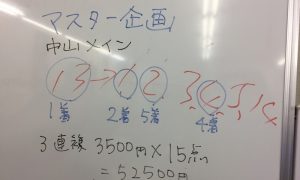 マスター企画
中山メイン
13→1 2 3 2 5 14
1着 2着 5着 4着
3連複 3500円×15点
=52500円